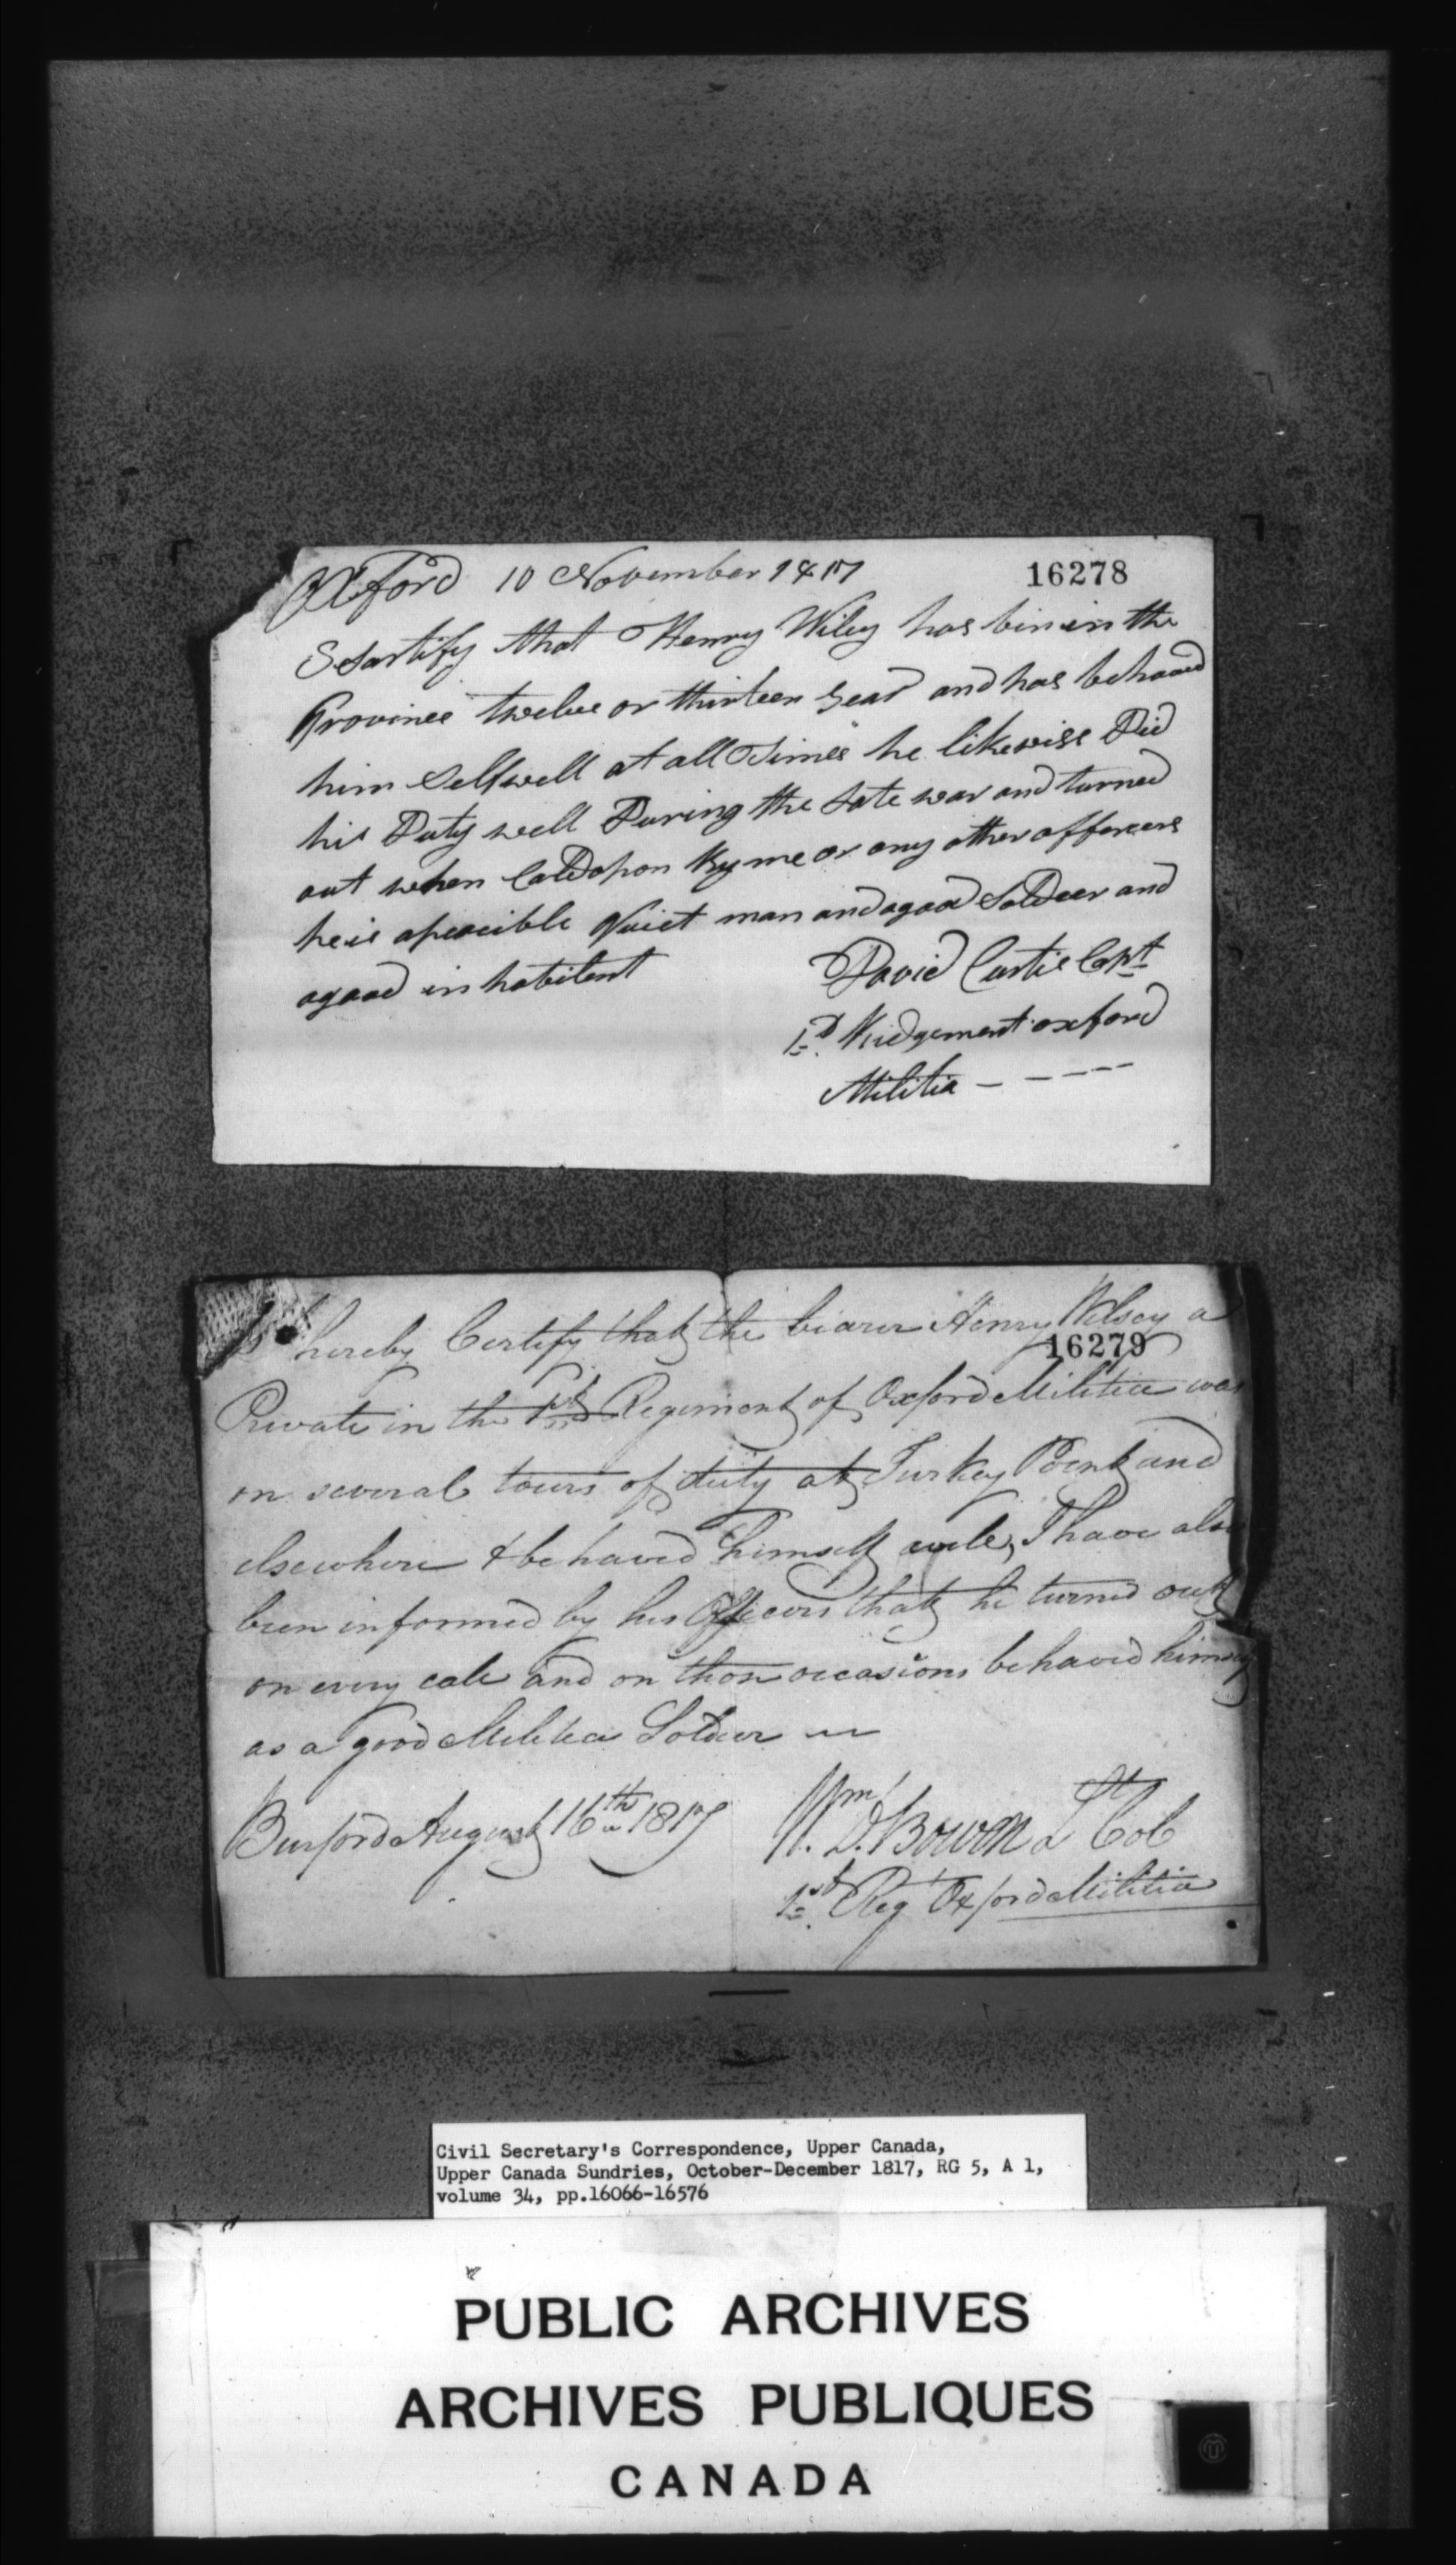 Oxford 10 November 1817
16278
I Sartify that Henry Wiley has bin in the
Province twelve or thirteen year and has behaved
him Self well at all Times he likewise Did
his Duty well During the Late war and turned
out when Caldopon By me or any other offercers
he is apeacible Quiet man and agood Soldeer and
agood inhabitent
David Curtis Capt
1st Ridgement oxford
Militia - - - - -
I hereby Certify that the bearer Henry Wilsey a
16279
Private in the 1st Regiment of Oxford Militia was
on several tours of duty at Turkey Point and
elsewhere & behaved himself well, I have also
been informed by his Officers that he turned out
on every call and on those occasions behaved himself
as a good Militia Soldier
Burford August 16th 1817
Wm. D. Bowen Lt Col
1st Reg Oxford Militia
Civil Secretary's Correspondence, Upper Canada,
Upper Canada Sundries, October-December 1817, RG 5, A 1,
volume 34, pp.16066-16576
PUBLIC ARCHIVES
ARCHIVES PUBLIQUES
CANADA